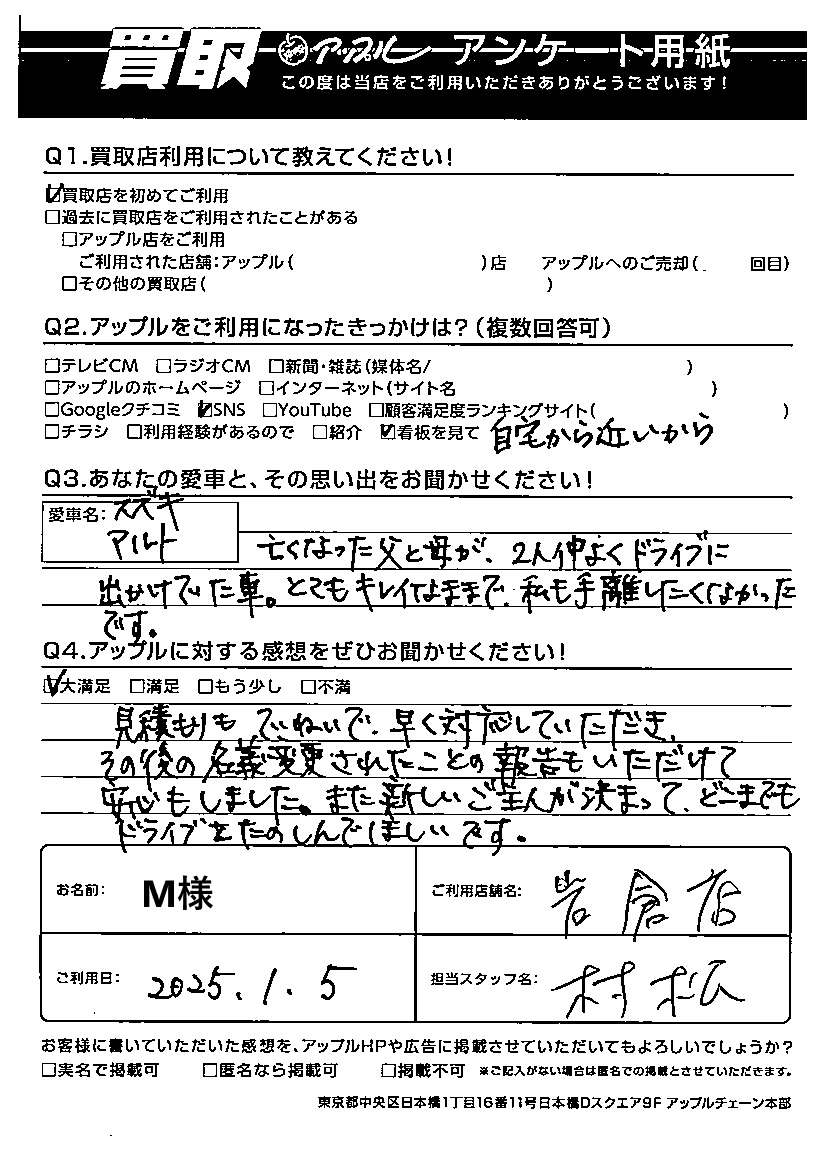 買取 アップル アンケート用紙
この度は当店をご利用いただきありがとうございます!
Q1.買取店利用について教えてください!
☑買取店を初めてご利用
□過去に買取店をご利用されたことがある
□アップル店をご利用
ご利用された店舗:アップル( )店 アップルへのご売却( 回目)
□その他の買取店( )
Q2.アップルをご利用になったきっかけは?(複数回答可)
□テレビCM □ラジオCM □新聞・雑誌(媒体名/ )
□アップルのホームページ □インターネット(サイト名 )
□Googleクチコミ ☑SNS □YouTube □顧客満足度ランキングサイト( )
□チラシ □利用経験があるので □紹介 ☑看板を見て 自宅から近いから
Q3.あなたの愛車と、その思い出をお聞かせください!
愛車名: スズキ
アルト
亡くなった父と母が、2人仲よくドライブに
出かけていた車。とてもキレイなままで、私も手離したくなかった
です。
Q4.アップルに対する感想をぜひお聞かせください!
☑大満足 □満足 □もう少し □不満
見積もりもていねいで、早く対応していただき、
その後の名義変更されたことの報告もいただけて
安心もしました。また新しいご主人が決まって、どこまでも
ドライブをたのしんでほしいです。
お名前: M様 ご利用店舗名: 岩倉店
ご利用日: 2025.1.5 担当スタッフ名: 村松
お客様に書いていただいた感想を、アップルHPや広告に掲載させていただいてもよろしいでしょうか?
□実名で掲載可 □匿名なら掲載可 □掲載不可 ※ご記入がない場合は匿名での掲載とさせていただきます。
東京都中央区日本橋1丁目16番11号日本橋Dスクエア9F アップルチェーン本部